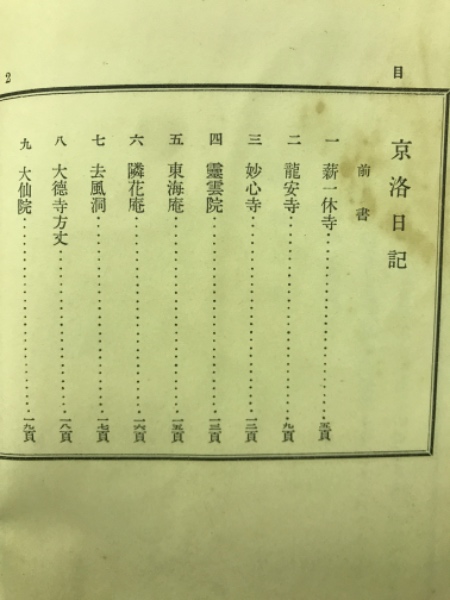 目
2
京洛日記
前書
一 薪一休寺 五頁
二 龍安寺 九頁
三 妙心寺 一二頁
四 靈雲院 一三頁
五 東海庵 一五頁
六 隣花庵 一六頁
七 去風洞 一七頁
八 大德寺方丈 一八頁
九 大仙院 一九頁